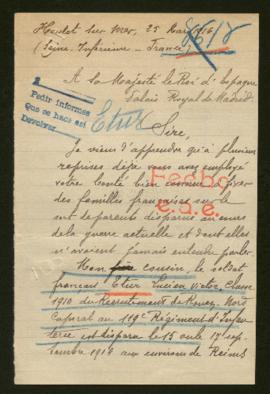 Hautot sur Mer, 25 Mai 1916
(Seine Inférieure - France)
8618
A Sa Majesté le Roi d'Espagne
Palais Royal de Madrid
Pedir informes
Que se hace así
Devolver
Etur
Sire,
Je viens d'apprendre qu'à plusieurs
reprises déjà vous avez employé
votre bonté bien connue
des familles françaises sur le
de parents disparus au cours
de la guerre actuelle et dont elles
n'avaient jamais entendu parler.
Fecho
e.a.e.
Mon cousin, le soldat
français Lucien Victor, Classe
1910 du Recrutement de Rouen, Nort
Caporal au 119e Régiment d'Infan
terie est disparu le 15 ou le 17 sep
tembre 1914 aux environs de Reims